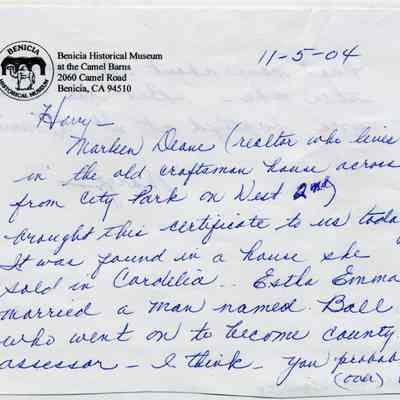 BENICIA
HISTORICAL MUSEUM
Benicia Historical Museum
at the Camel Barns
2060 Camel Road
Benicia, CA 94510
11-5-04
Harry -
Marleen Deane (realtor who lives
in the old craftsman house across
from City Park on West 2nd)
brought this certificate to us today
It was found in a house she
sold in Cordelia.. Estha Emma
married a man named Ball
who went on to become county
assessor - I think - you probab
(over)